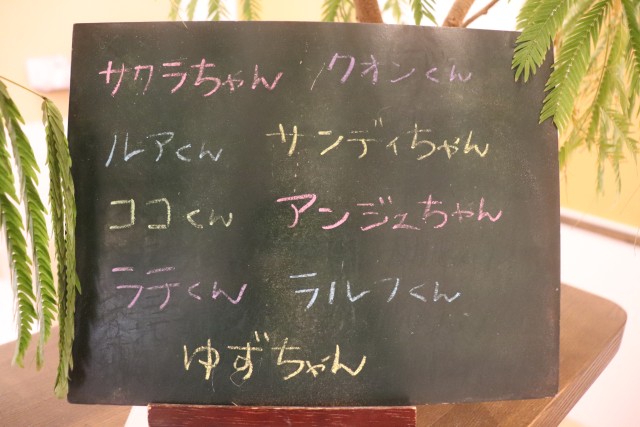 サクラちゃん クオンくん
ルアくん サンディちゃん
ココくん アンジェちゃん
ラテくん ラルフくん
ゆずちゃん